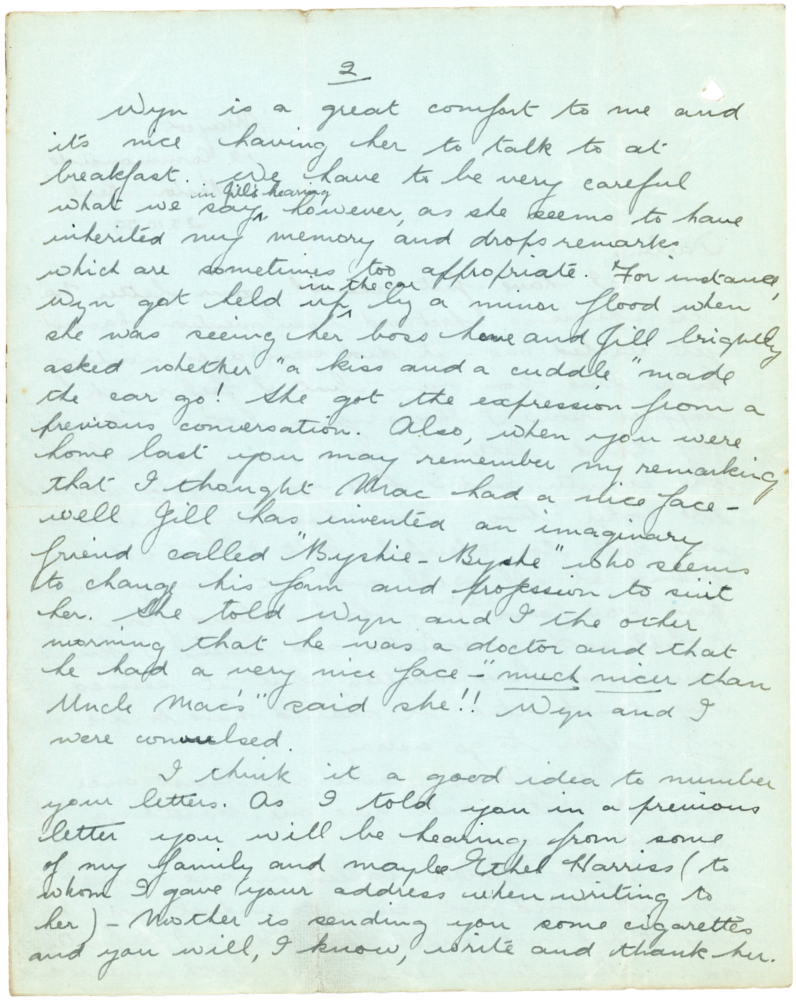 2
Wyn is a great comfort to me and
it's nice having her to talk to at
breakfast. We have to be very careful
in Jill's hearing
what we say ^ however, as she seems to have
inherited my memory and drops remarks
which are sometimes too appropriate. For instance,
in the car
Wyn got held up ^ by a minor flood when
she was seeing her boss home and Jill brightly
asked whether "a kiss and a cuddle" made
the car go! She got the expression from a
previous conversation. Also, when you were
home last you may remember my remarking
that I thought Mac had a nice face -
well Jill has invented an imaginary
friend called "Byshie - Byshe" who seems
to change his form and profession to suit
her. She told Wyn and I the other
morning that he was a doctor and that
he had a very nice face - "much nicer than
Uncle Mac's" said she!! Wyn and I
were convulsed.
I think it a good idea to number
your letters. As I told you in a previous
letter you will be hearing from some
of my family and maybe Ethel Harriss (to
whom I gave your address when writing to
her) - Mother is sending you some cigarettes
and you will, I know, write and thank her.